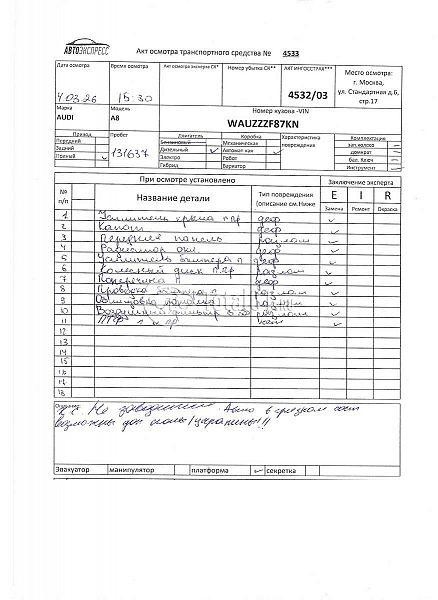 АВТОЭКСПРЕСС
Акт осмотра транспортного средства № 4533
Дата осмотра
Время осмотра
Акт осмотра эксперта СК*
Номер убытка СК**
АКТ ИНГОССТРАХ***
Место осмотра:
г. Москва,
ул. Стандартная д.6,
стр.17
4.03.26
15:30
4532/03
Марка
Модель
Номер кузова -VIN
AUDI
A8
WAUZZZF87KN
Привод
Пробег
Двигатель
Коробка
Характеристика повреждения
Комплектация
Передний
Бензиновый
Механическая
зап.колесо
Задний
131637
Дизельный
Автомат кпп
домкрат
Полный
Электро
Робот
бал. Ключ
Гибрид
Вариатор
Инструмент
При осмотре установлено
Заключение эксперта
№ п/п
Название детали
Тип повреждения (описание см.Ниже
E
I
R
Замена
Ремонт
Окраска
1 Усилитель крыла п пр деф
2 Капот деф
3 Передняя панель разлом
4 Радиатор деф
5 Усилитель бампера п деф
6 Колесный диск п.пр разлом
7 Поперечина п деф
8 Проводка бампера п разлом
9 разлом
10 Воздушный фильтр разлом
11 ПТФ
12
13
14
15
16
17
18
Не заводится. Авто в грязном сост
возможны доп сколы/царапины!!!
Эвакуатор
манипулятор
платформа
секретка